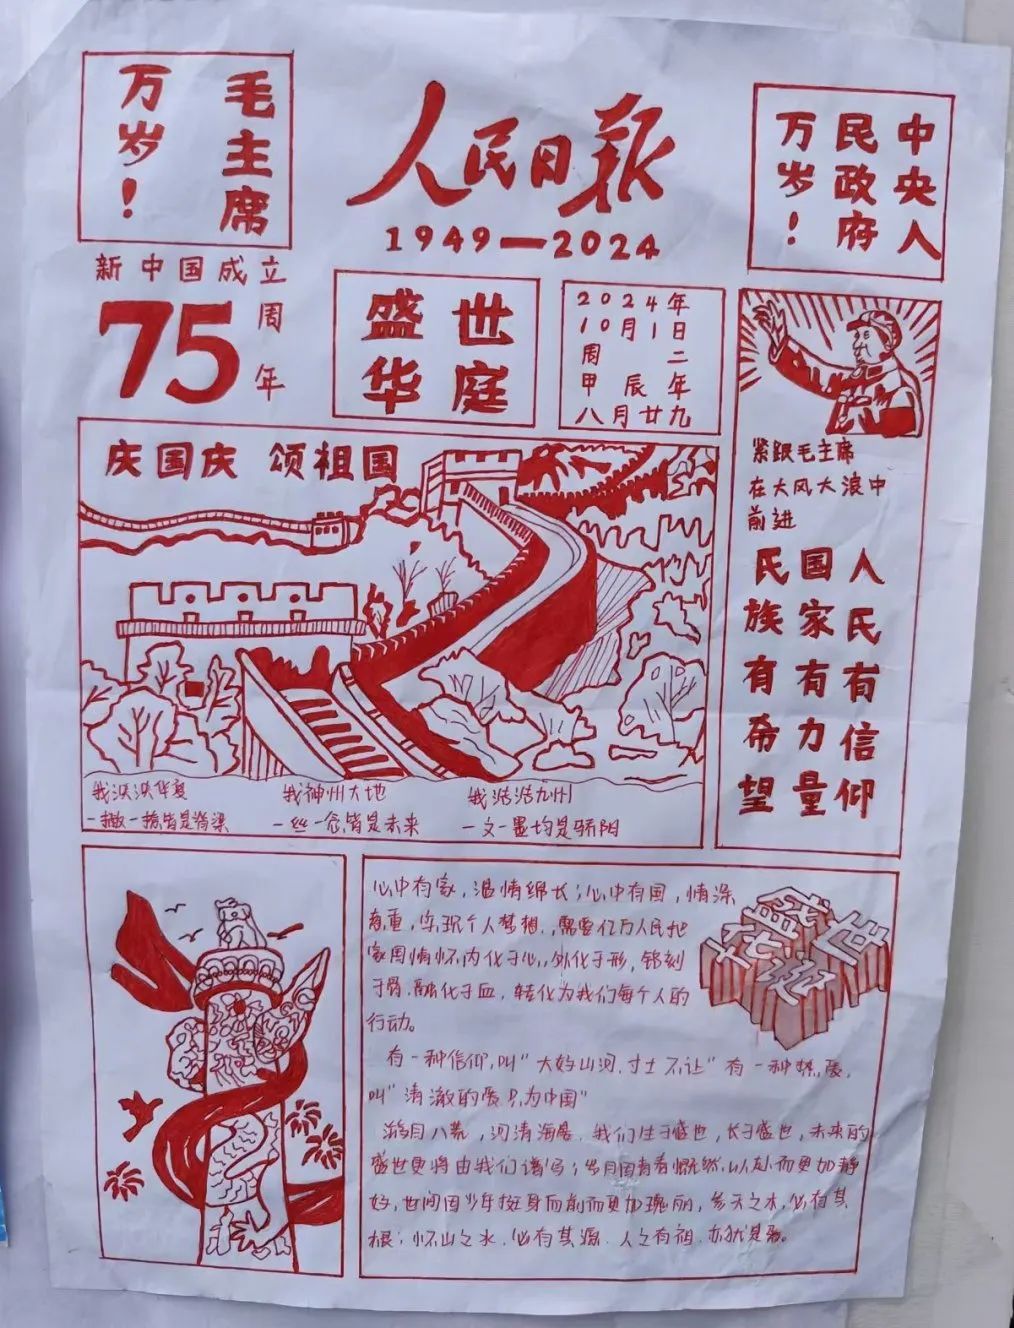 毛主席
万岁！
人民日报
1949—2024
中央人
民政府
万岁！
新中国成立
75周年
盛世
华庭
2024年
10月1日
周二
甲辰年
八月廿九
紧跟毛主席
在大风大浪中
前进
人民有信仰
国家有力量
民族有希望
庆国庆 颂祖国
我泱泱华夏
一撇一捺皆是脊梁
我神州大地
一丝一念皆是未来
我浩浩九州
一文一墨均是骄阳
心中有家，温情绵长；心中有国，情深
意重，实现个人梦想，需要亿万人民把
家国情怀内化于心，外化于形，铭刻
于骨，融化于血，转化为我们每个人的
行动。
有一种信仰，叫“大好山河，寸土不让”有一种热爱，
叫“清澈的爱只为中国”
游目八荒，河清海晏，我们生于盛世，长于盛世，未来的
盛世更将由我们谱写；岁月因青春慨然以赴而更加静
好，世间因少年挺身而前而更加瑰丽，参天之木，必有其
根；怀山之水，必有其源，人之有祖，亦犹是焉。
盛世